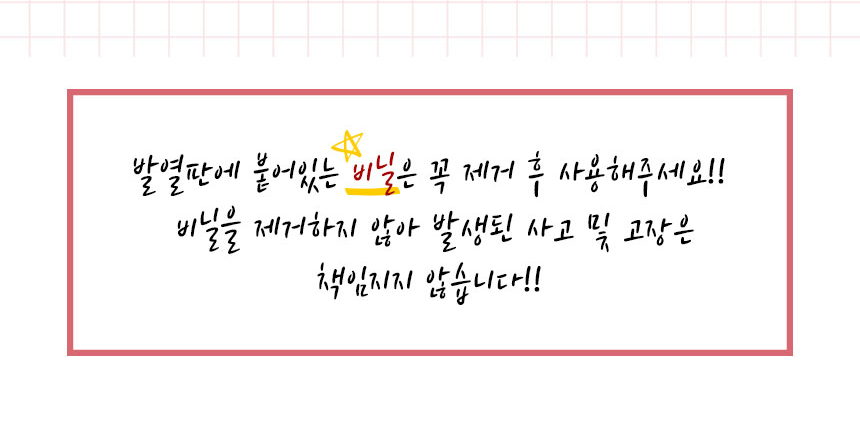 발열판에 붙어있는 비닐은 꼭 제거 후 사용해주세요!!
비닐을 제거하지 않아 발생된 사고 및 고장은
책임지지 않습니다!!